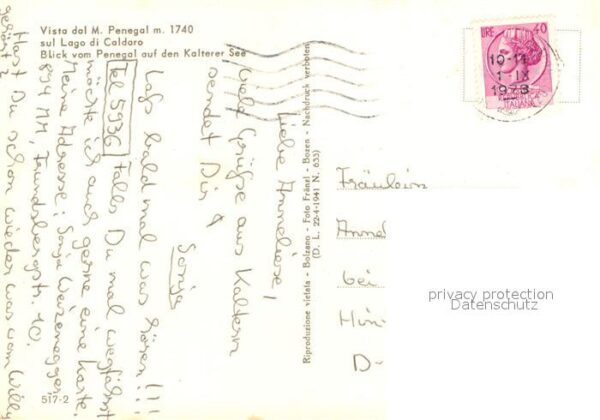 Vista dal M. Penegal m. 1740
sul Lago di Caldaro
Blick vom Penegal auf den Kalterer See
LIRE 40
10-11
1-IX
1973
REPUBBLICA ITALIANA
Liebe Anneliese,
viele Grüße aus Kaltern
sendet Dir
Sonja
Laß bald mal was hören!!!
Tel 5936 Falls Du mal wegfährst
möchte ich auch gerne eine Karte.
Meine Adresse: Sonja Weizenegger
894 MM, Frundsbergstr. 10.
Hast Du schon wieder was vom Willy
gehört?
Riproduzione vietata - Bolzano - Foto Fränzl - Bozen - Nachdruck verboten
(D. L. 22-4-1941 N. 633)
Fräulein
Annel
bei
Hin
D-
privacy protection
Datenschutz
517-2